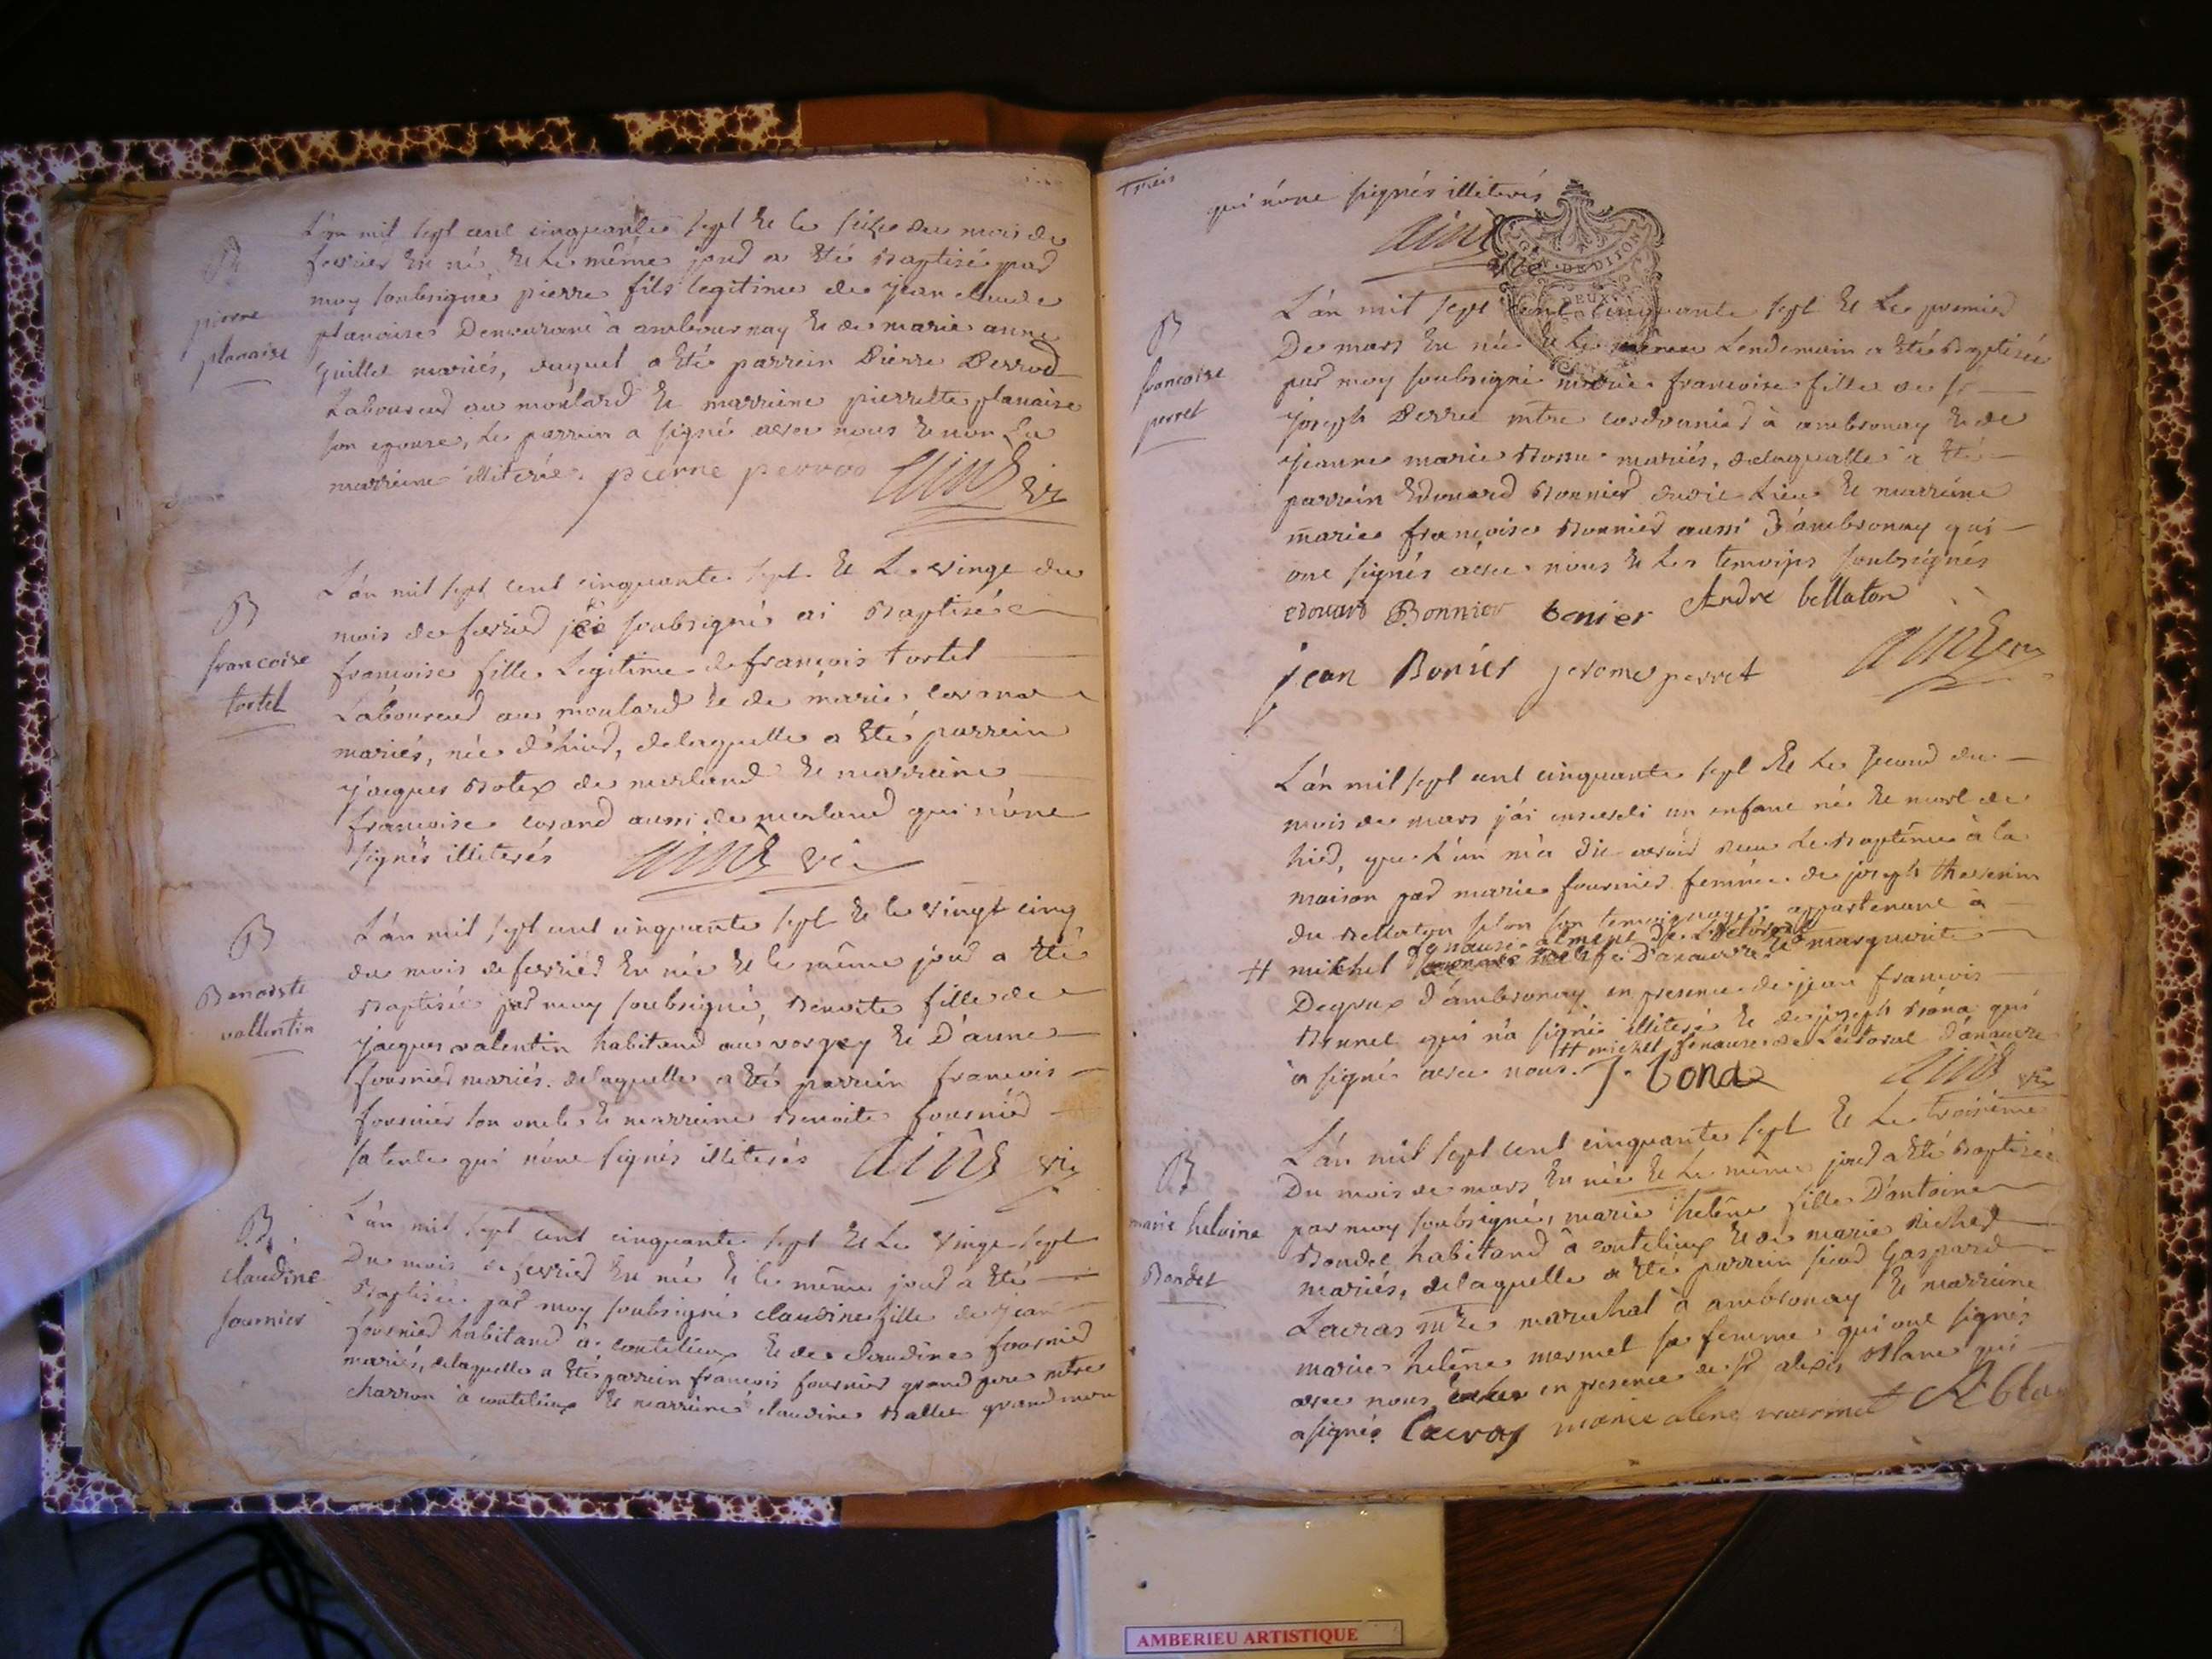 B
pierre
planaise
L'an mil sept cent cinquante sept et le seize du mois de
fevrier est né, et le même jour a été Baptisé par
moy soubsigné pierre fils legitime de jean claude
planaise Demeurant à ambournay et de marie anne
guillet mariés, duquel a été parrein Pierre Perrod
Laboureur au moulard et marreine pierrette planaise
son epouse, le parrein a signé avec nous et non la
marreine illiterée. pierre perrod
B
francoise
tortel
L'an mil sept cent cinquante sept et le vingt du
mois de fevrier je soubsigné ai Baptisée
françoise fille Legitime de françois tortel
Laboureur au moulard et de marie
mariés, née d'hier, delaquelle a été parrein
jacques Botex de merland et marreine
francoise corand aussi de merland qui n'ont
signés illiterés
B
Benoiste
vallentin
L'an mil sept cent cinquante sept et le vingt cinq
du mois de fevrier est née et le même jour a été
Baptisée par moy soubsigné, Benoite fille de
jacques valentin habitant au vorgey et D'anne
fournier mariés. delaquelle a été parrein francois
fournier son oncle et marreine Benoite fournier
sa tante qui n'ont signés illiterés
B
claudine
fournier
L'an mil sept cent cinquante sept et le vingt sept
Du mois de fevrier est née et le même jour a été
Baptisée par moy soubsigné claudine fille de jean
fournier habitant à coutelieux et de claudine fournier
mariés, delaquelle a été parrein francois fournier grand pere mtre
charron à coutelieux et marreine claudine Ballet grand mere
Trois
qui n'ont signés illiterés
GEN. DE DIJON
DEUX
B
francoise
perret
L'an mil sept cent cinquante sept et le premier
De mars est née et le lendemain a été Baptisée
par moy soubsigné marie francoise fille de sr
joseph Perret mtre cordonnier à ambronay et de
jeanne marie Bonne mariés, delaquelle a été
parrein Edouard Bonnier dudit Lieu et marreine
marie françoise Bonnier aussi d'ambronay qui
ont signés avec nous et les temoins soubsignés
edouard Bonnier bonier Andre bellaton
jean Bonier jerome perret
L'an mil sept cent cinquante sept et le second du
mois de mars j'ai enseveli un enfant né et mort de
hier, que l'on m'a dit avoir reçu le Baptême à la
maison par marie fournier femme de joseph thevenin
du Bellaton selon son temoignage appartenant à
# michel D'anauvre et marguerite
Degroux d'ambronay en presence de jean francois
Brunet qui n'a signé illiteré et de joseph Bona qui
# michel
a signé avec nous. J. bona
B
marie heleine
Bondet
L'an mil sept cent cinquante sept et le troisieme
Du mois de mars est née et le même jour a été Baptisée
par moy soubsigné, marie helêne fille D'antoine
Bondet habitant à coutelieux et de marie Richer
mariés, delaquelle a été parrein sieur Gaspard
Lacras mtre marechal à ambronay et marreine
marie helêne mermet sa femme qui ont signés
avec nous en presence de sr alexis Blanc qui
a signé. Lacras marie alene mermet
AMBERIEU ARTISTIQUE